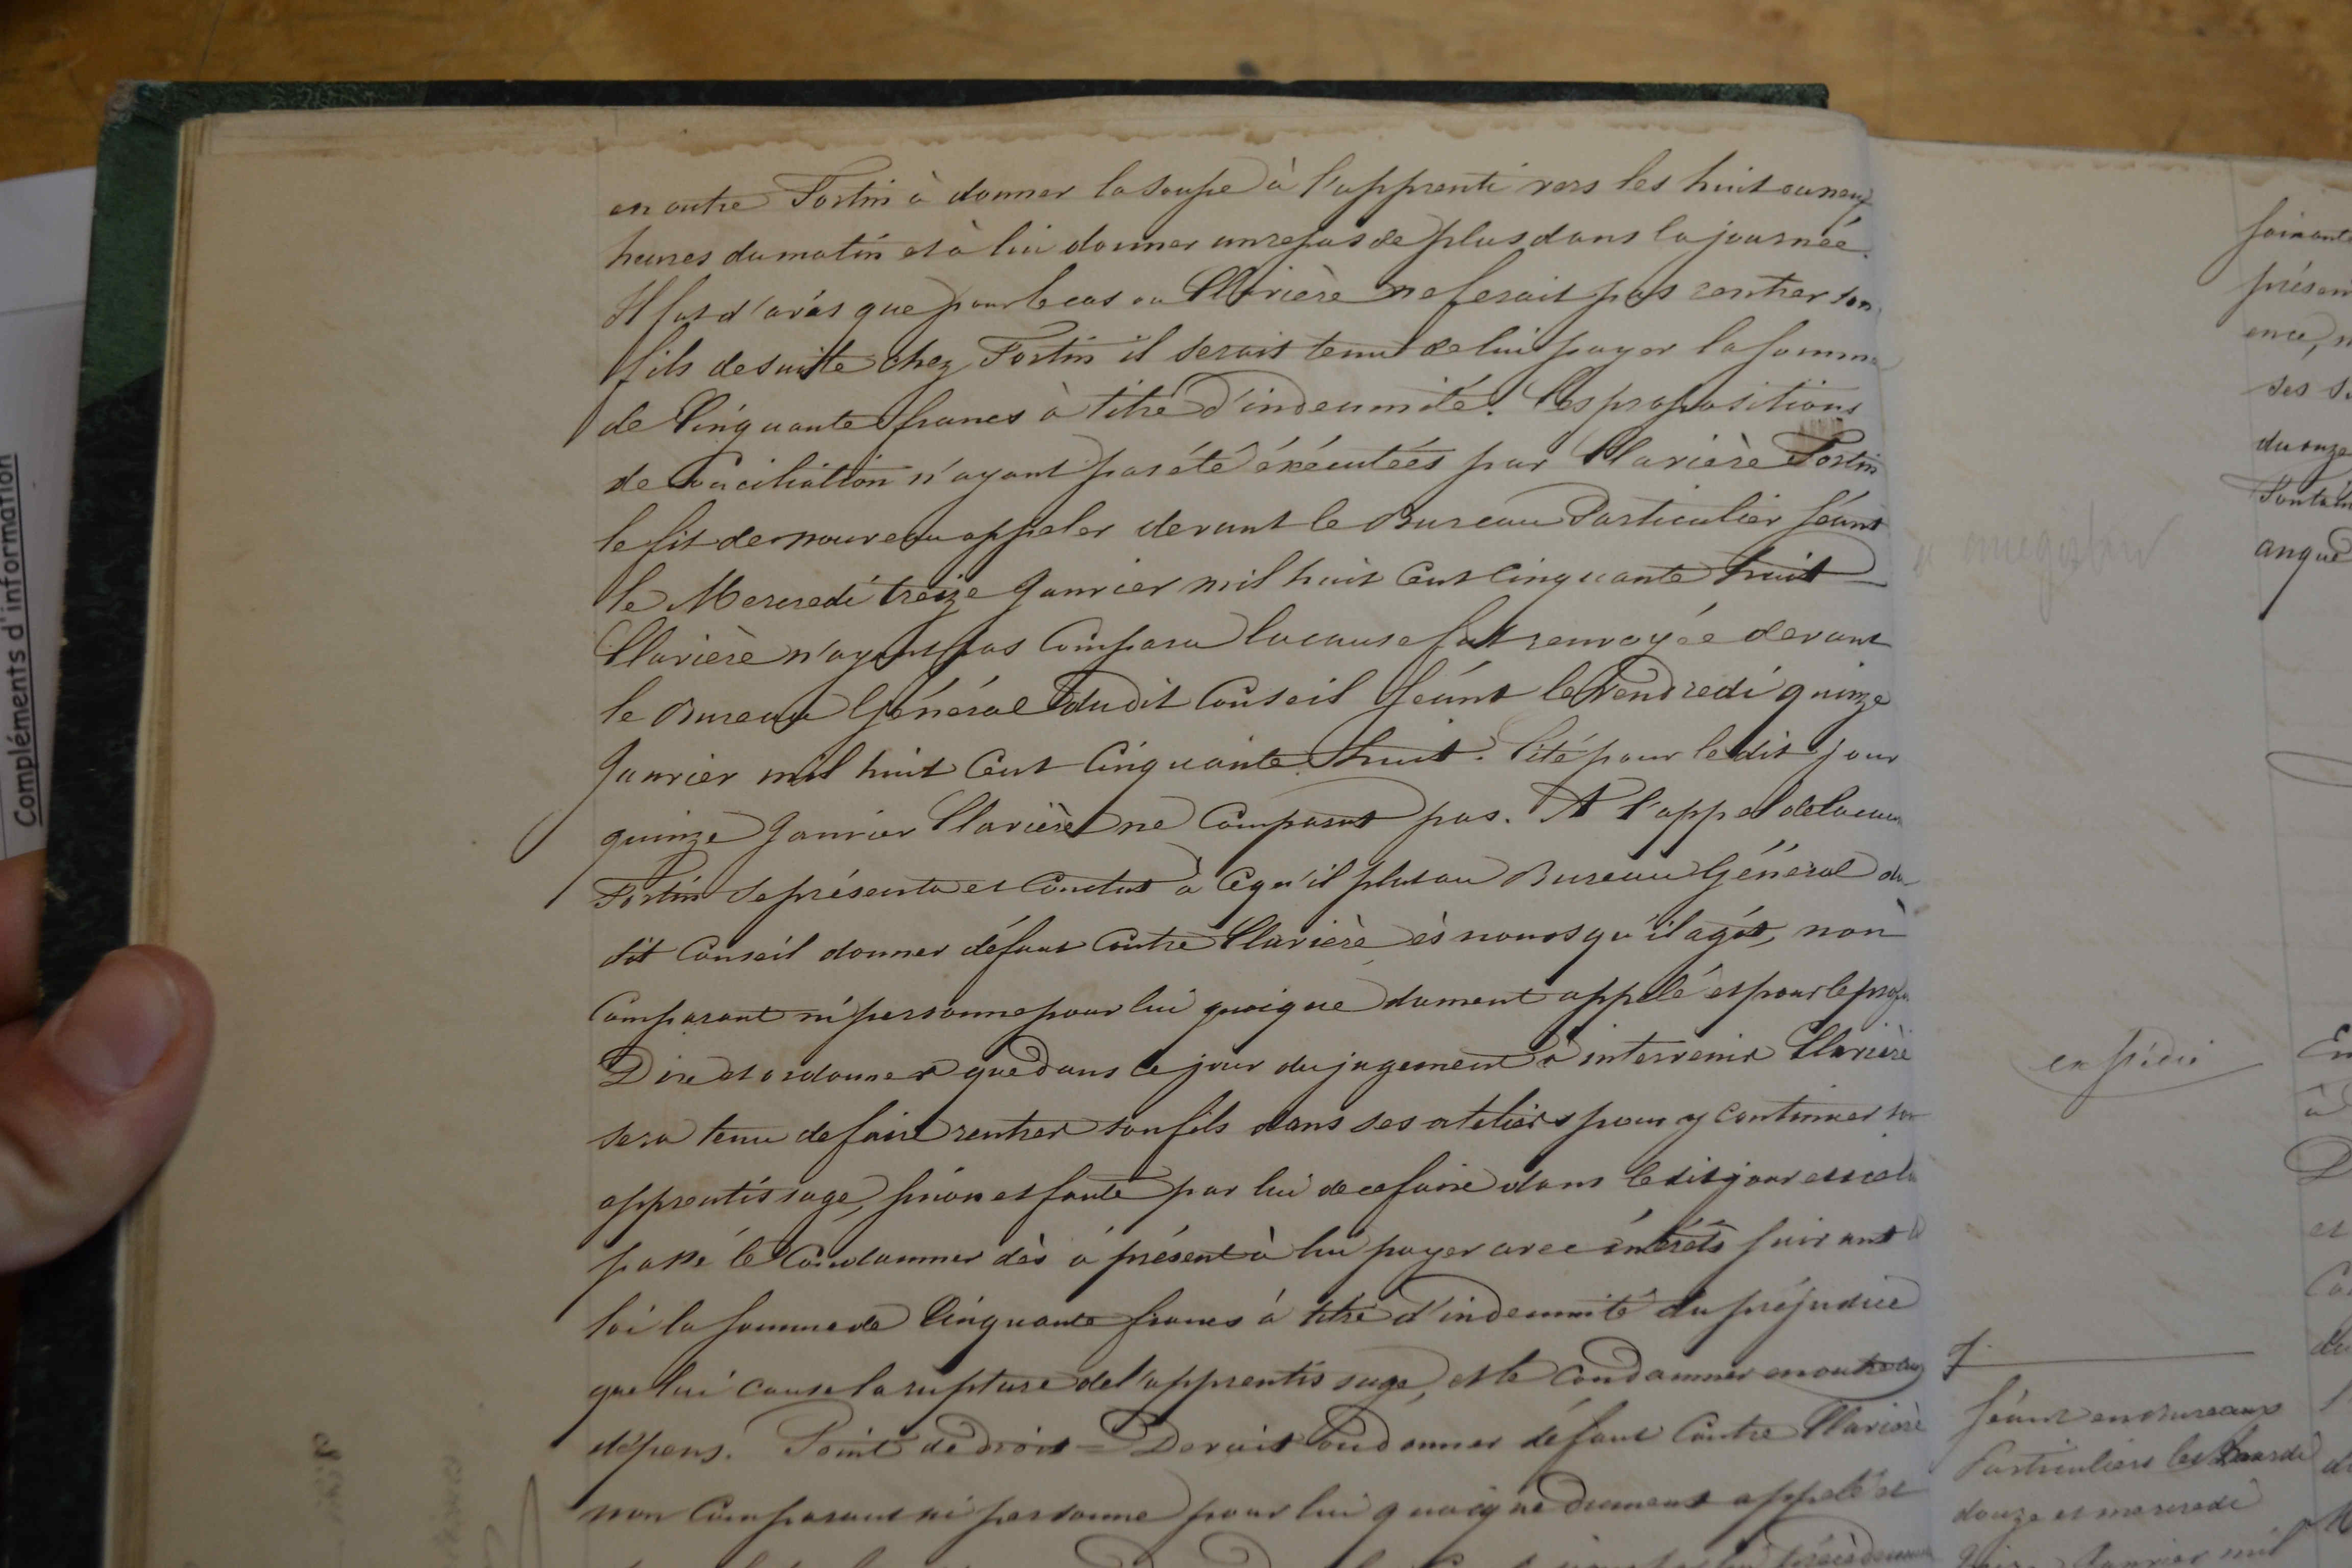 en outre Fortin à donner la soupe à l'apprenti vers les huit ou neuf
heures du matin et à lui donner un repas de plus dans la journée.
Il fut d'avis que pour le cas ou Clavière ne ferait pas rentrer son
fils de suite chez Fortin il serait tenu de lui payer la somme
de Cinquante francs à titre d'indemnité. Ces propositions
de Conciliation n'ayant pas été éxécutées par Clavière Fortin
le fit de nouveau appeler devant le Bureau Particulier séant
le Mercredi treize Janvier mil huit Cent Cinquante huit
Clavière n'ayant pas Comparu la cause fut renvoyée devant
le Bureau Général dudit Conseil séant le Vendredi quinze
Janvier mil huit Cent Cinquante huit. Cité pour le dit jour
quinze Janvier Clavière ne Comparut pas. A l'appel de la cause
Fortin se présenta et Conclut à Ce qu'il plut au Bureau Général du
dit Conseil donner défaut Contre Clavière ès noms qu'il agit, non
Comparant ni personne pour lui quoique dument appelé et pour le profit
Dire et ordonner que dans le jour du jugement à intervenir Clavière
sera tenu de faire rentrer son fils dans ses ateliers pour y continuer son
apprentissage, sinon et faute par lui de ce faire dans le dit jour et icelui
passé le Condamner dès à présent à lui payer avec intérêts suivant la
loi la somme de Cinquante francs à titre d'indemnité du préjudice
que lui cause la rupture de l'apprentissage, et le Condamner en outre aux
dépens. Point de droit = Devait-on donner défaut Contre Clavière
non Comparant ni personne pour lui quoique dument appelé et
Compléments d'information
présen
ence,
du onze
expédié
séant en Bureaux
Particuliers les Mardi
douze et mercredi
Janvier mil